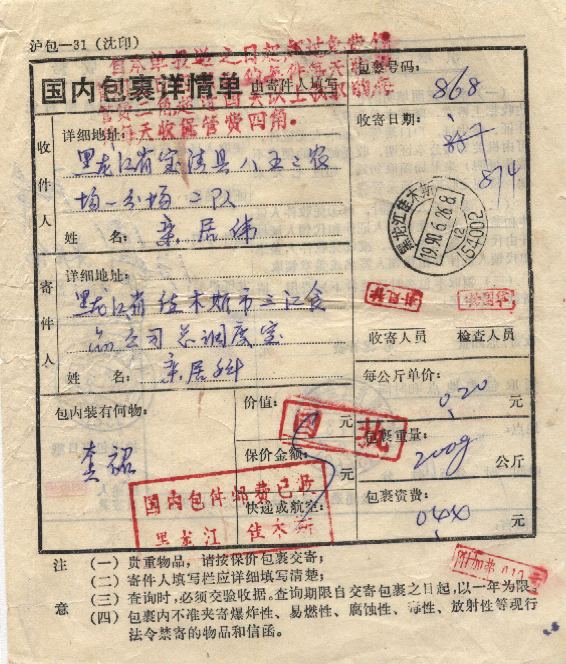 沪包—31(沈印)
国内包裹详情单
由寄件人填写
包裹号码:
868
收件人
详细地址:
黑龙江省宝清县八五三农
场一分场二队
姓 名:
栾居伟
收寄日期:
874
黑龙江佳木斯
1990.6.26.8
12
(154002)
寄件人
详细地址:
黑龙江省佳木斯市三江食
品公司总调度室
姓 名:
栾居科
收寄人员
检查人员
包内装有何物:
价值:
元
保价金额:
元
快递或航空:
每公斤单价:
020
元
包裹重量:
200g
公斤
包裹资费:
044
元
国内包件邮费已付
黑龙江 佳木斯
注意
(一) 贵重物品,请按保价包裹交寄;
(二) 寄件人填写栏应详细填写清楚;
(三) 查询时,必须交验收据。查询期限自交寄包裹之日起,以一年为限;
(四) 包裹内不准夹寄爆炸性、易燃性、腐蚀性、毒性、放射性等现行
法令禁寄的物品和信函。